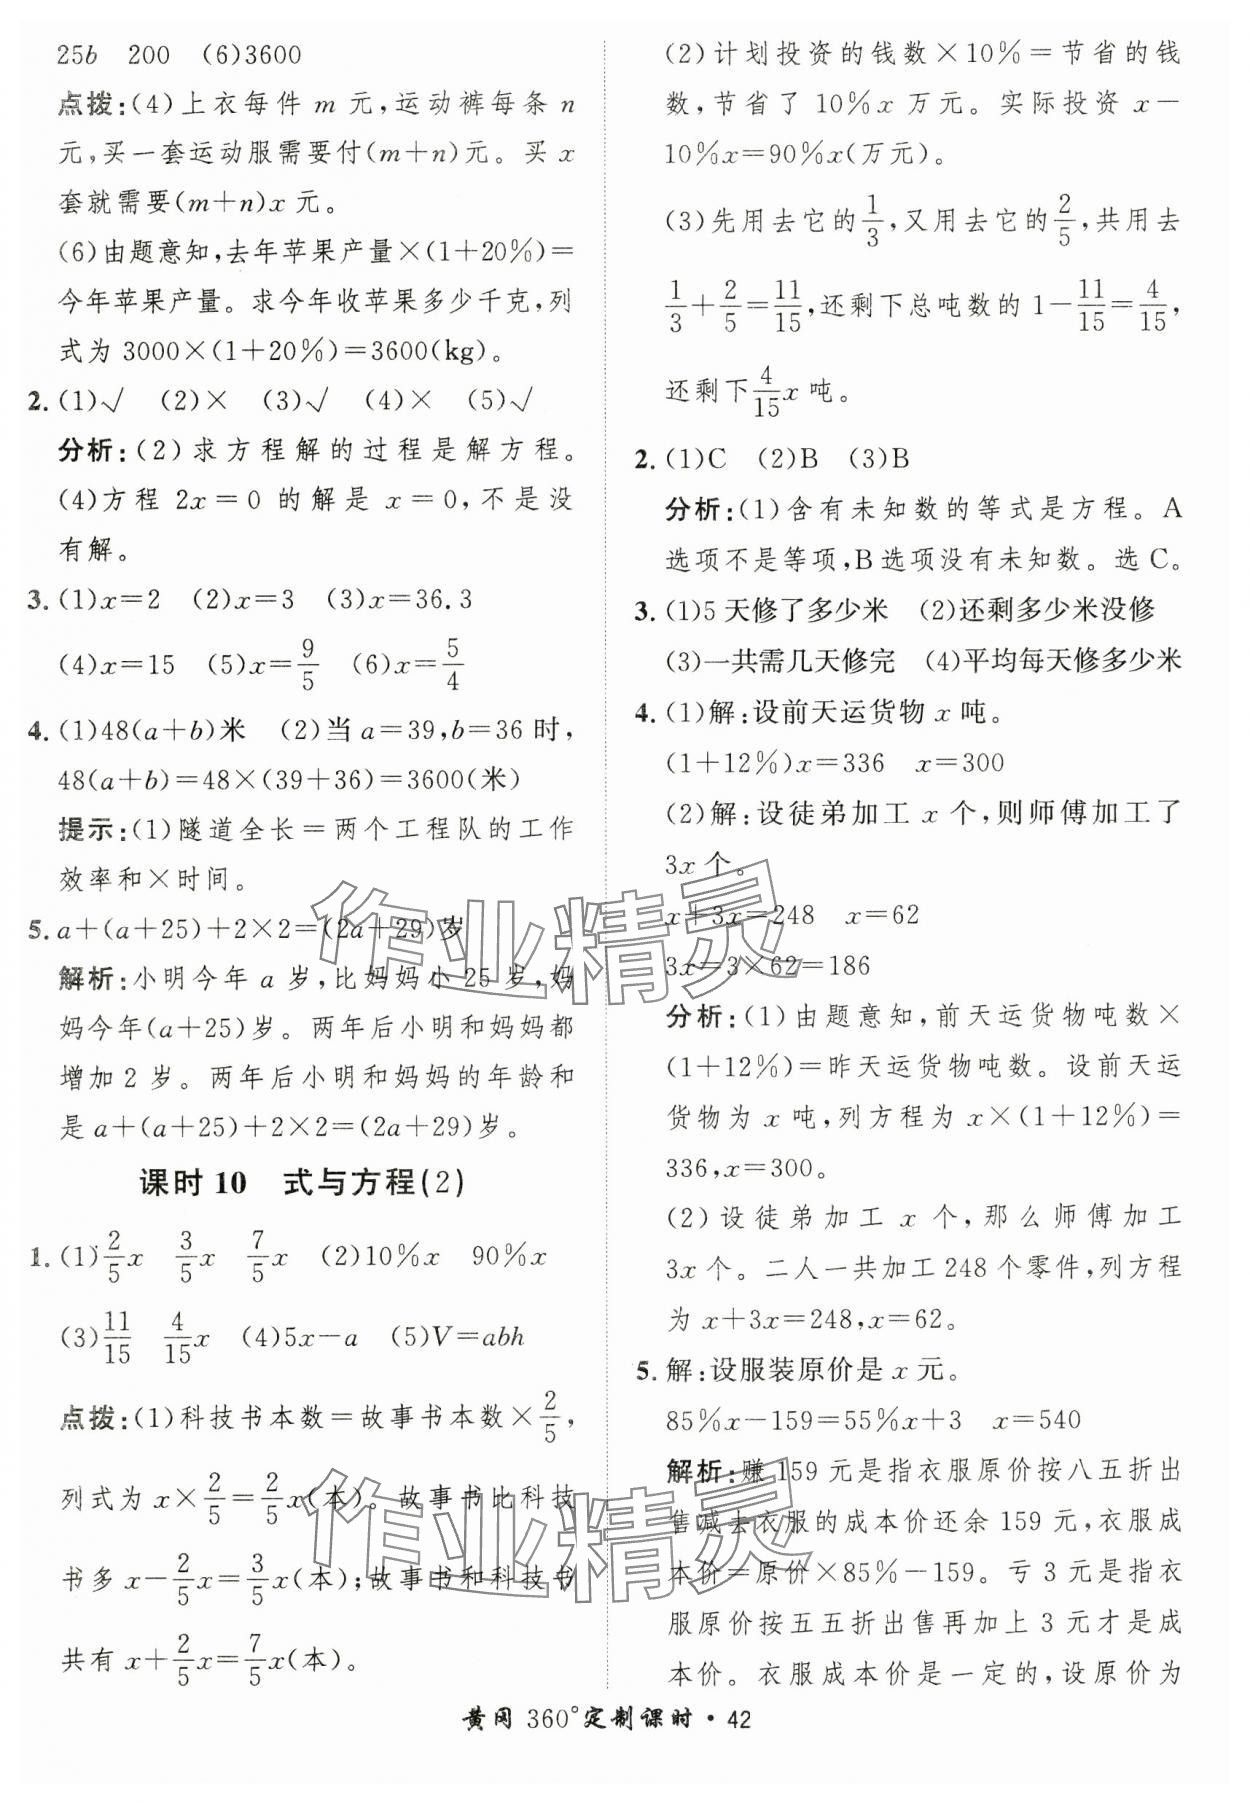 25b  200  (6)3600
点拨:(4)上衣每件 m 元,运动裤每条 n
元,买一套运动服需要付(m+n)元。买 x
套就需要(m+n)x 元。
(6)由题意知,去年苹果产量×(1+20%)=
今年苹果产量。求今年收苹果多少千克,列
式为 3000×(1+20%)=3600(kg)。
2. (1)√  (2)×  (3)√  (4)×  (5)√
分析:(2)求方程解的过程是解方程。
(4)方程 2x=0 的解是 x=0,不是没
有解。
3. (1)x=2  (2)x=3  (3)x=36.3
(4)x=15  (5)x=9/5  (6)x=5/4
4. (1)48(a+b)米  (2)当 a=39,b=36 时,
48(a+b)=48×(39+36)=3600(米)
提示:(1)隧道全长=两个工程队的工作
效率和×时间。
5. a+(a+25)+2×2=(2a+29)岁
解析:小明今年 a 岁,比妈妈小 25 岁,妈
妈今年(a+25)岁。两年后小明和妈妈都
增加 2 岁。两年后小明和妈妈的年龄和
是 a+(a+25)+2×2=(2a+29)岁。
课时 10  式与方程(2)
1. (1)2/5x  3/5x  7/5x  (2)10%x  90%x
(3)11/15  4/15x  (4)5x-a  (5)V=abh
点拨:(1)科技书本数=故事书本数×2/5,
列式为 x×2/5=2/5x(本)。故事书比科技
书多 x-2/5x=3/5x(本);故事书和科技书
共有 x+2/5x=7/5x(本)。
(2)计划投资的钱数×10%=节省的钱
数,节省了 10%x 万元。实际投资 x-
10%x=90%x(万元)。
(3)先用去它的1/3,又用去它的2/5,共用去
1/3+2/5=11/15,还剩下总吨数的 1-11/15=4/15,
还剩下4/15x 吨。
2. (1)C  (2)B  (3)B
分析:(1)含有未知数的等式是方程。A
选项不是等项,B选项没有未知数。选C。
3. (1)5 天修了多少米  (2)还剩多少米没修
(3)一共需几天修完  (4)平均每天修多少米
4. (1)解:设前天运货物 x 吨。
(1+12%)x=336  x=300
(2)解:设徒弟加工 x 个,则师傅加工了
3x 个。
x+3x=248  x=62
3x=3×62=186
分析:(1)由题意知,前天运货物吨数×
(1+12%)=昨天运货物吨数。设前天运
货物为 x 吨,列方程为 x×(1+12%)=
336,x=300。
(2)设徒弟加工 x 个,那么师傅加工
3x 个。二人一共加工 248 个零件,列方程
为 x+3x=248,x=62。
5. 解:设服装原价是 x 元。
85%x-159=55%x+3  x=540
解析:赚 159 元是指衣服原价按八五折出
售减去衣服的成本价还余 159 元,衣服成
本价=原价×85%-159。亏 3 元是指衣
服原价按五五折出售再加上 3 元才是成
本价。衣服成本价是一定的,设原价为
黄冈 360°定制课时·42
作业精灵
作业精灵